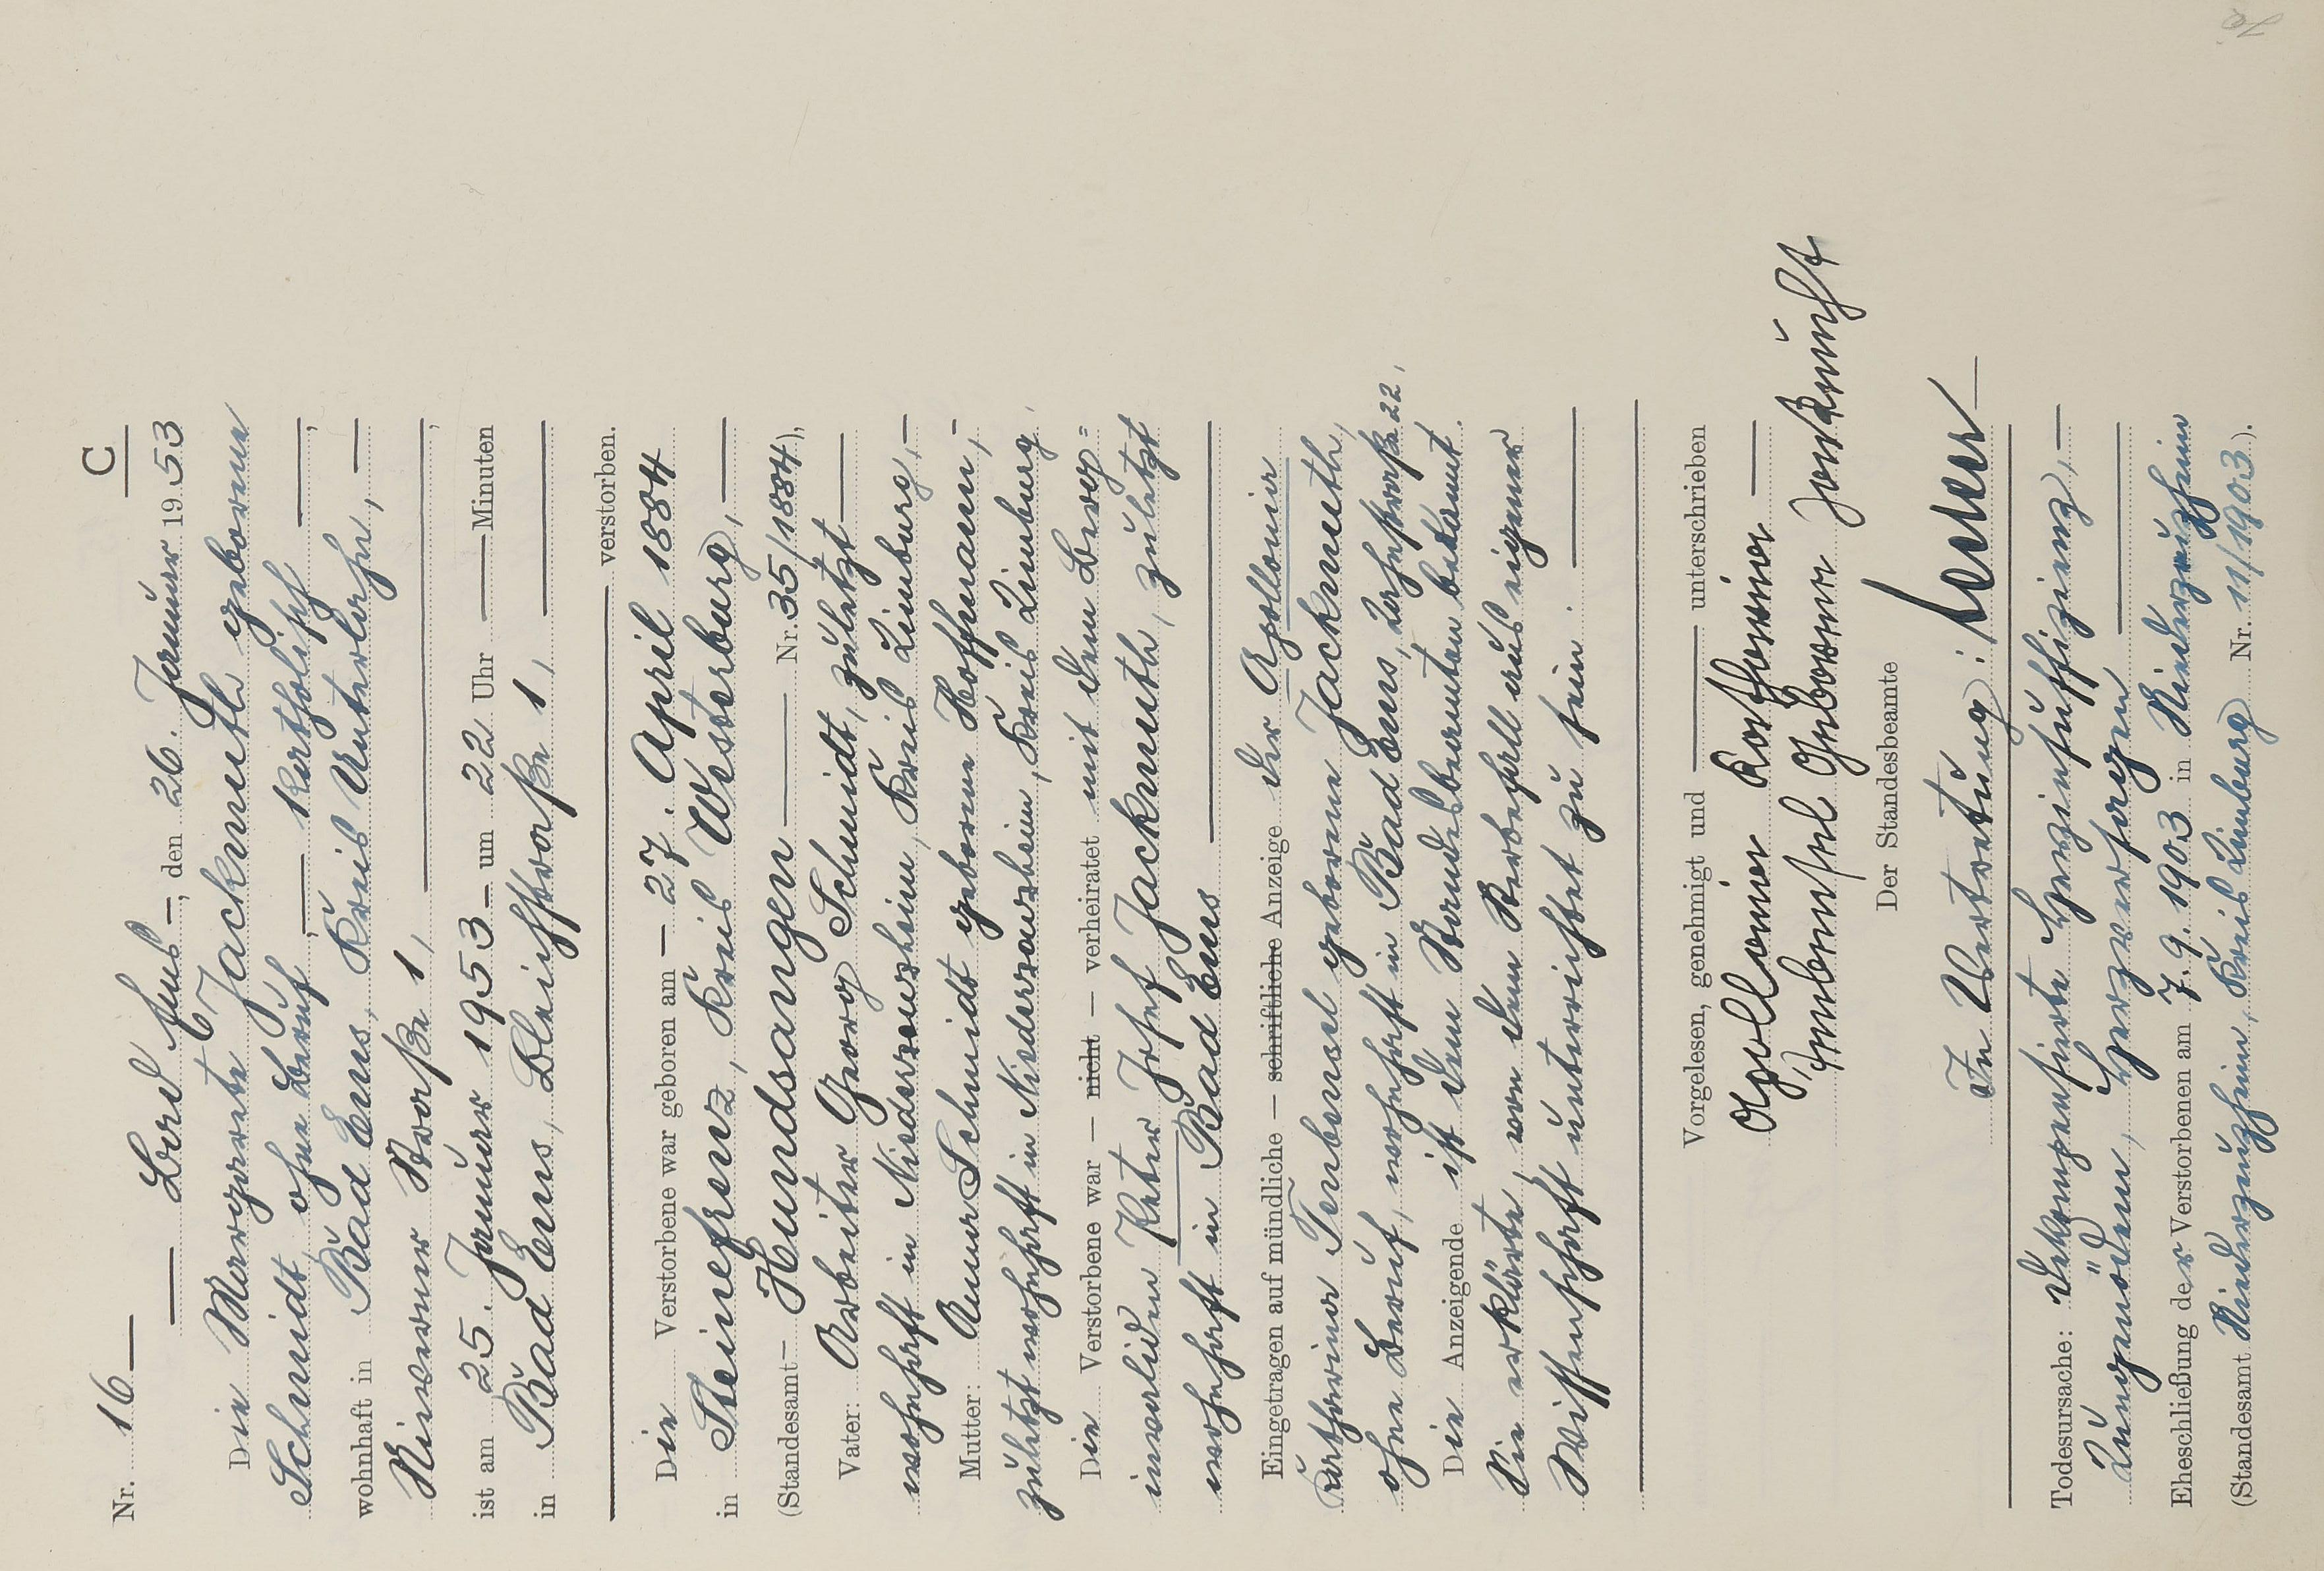 C
Nr. 16
Bad Ems, den 26. Januar 1953
Die Margarete Jackmuth geborene
Schmidt, ohne Beruf, katholisch,
wohnhaft in Bad Ems, Kreis Unterlahn,
Nieverner Straße 1,
ist am 25. Januar 1953 um 22 Uhr Minuten
in Bad Ems, Bleichstraße 1,
verstorben.
Die Verstorbene war geboren am 27. April 1884
in Steinefrenz, Kreis Westerburg,
(Standesamt Hundsangen Nr. 35/1884),
Vater: Arbeiter Georg Schmidt, zuletzt
wohnhaft in Niederzeuzheim, Kreis Limburg,
Mutter: Anna Schmidt geborene Hoffmann,
zuletzt wohnhaft in Niederzeuzheim, Kreis Limburg.
Die Verstorbene war — nicht — verheiratet mit dem Berg=
invaliden Peter Josef Jackmuth, zuletzt
wohnhaft in Bad Ems
Eingetragen auf mündliche — schriftliche Anzeige der Apollonia
Katharina geborene Jackmuth,
ohne Beruf, wohnhaft in Bad Ems, Lahnstraße 22.
Die Anzeigende ist dem Standesbeamten bekannt.
Sie erklärte, von dem Sterbefall aus eigener
Wissenschaft unterrichtet zu sein.
Vorgelesen, genehmigt und unterschrieben
Apollonia Katharina
geborene Jackmuth
Der Standesbeamte
In Vertretung:
Todesursache: Dekompensierte Herzinsuffizienz,
Lungenödem, Herzversagen
Eheschließung der Verstorbenen am 7. 9. 1903 in Niederzeuzheim
(Standesamt Niederzeuzheim, Kreis Limburg Nr. 11/1903).